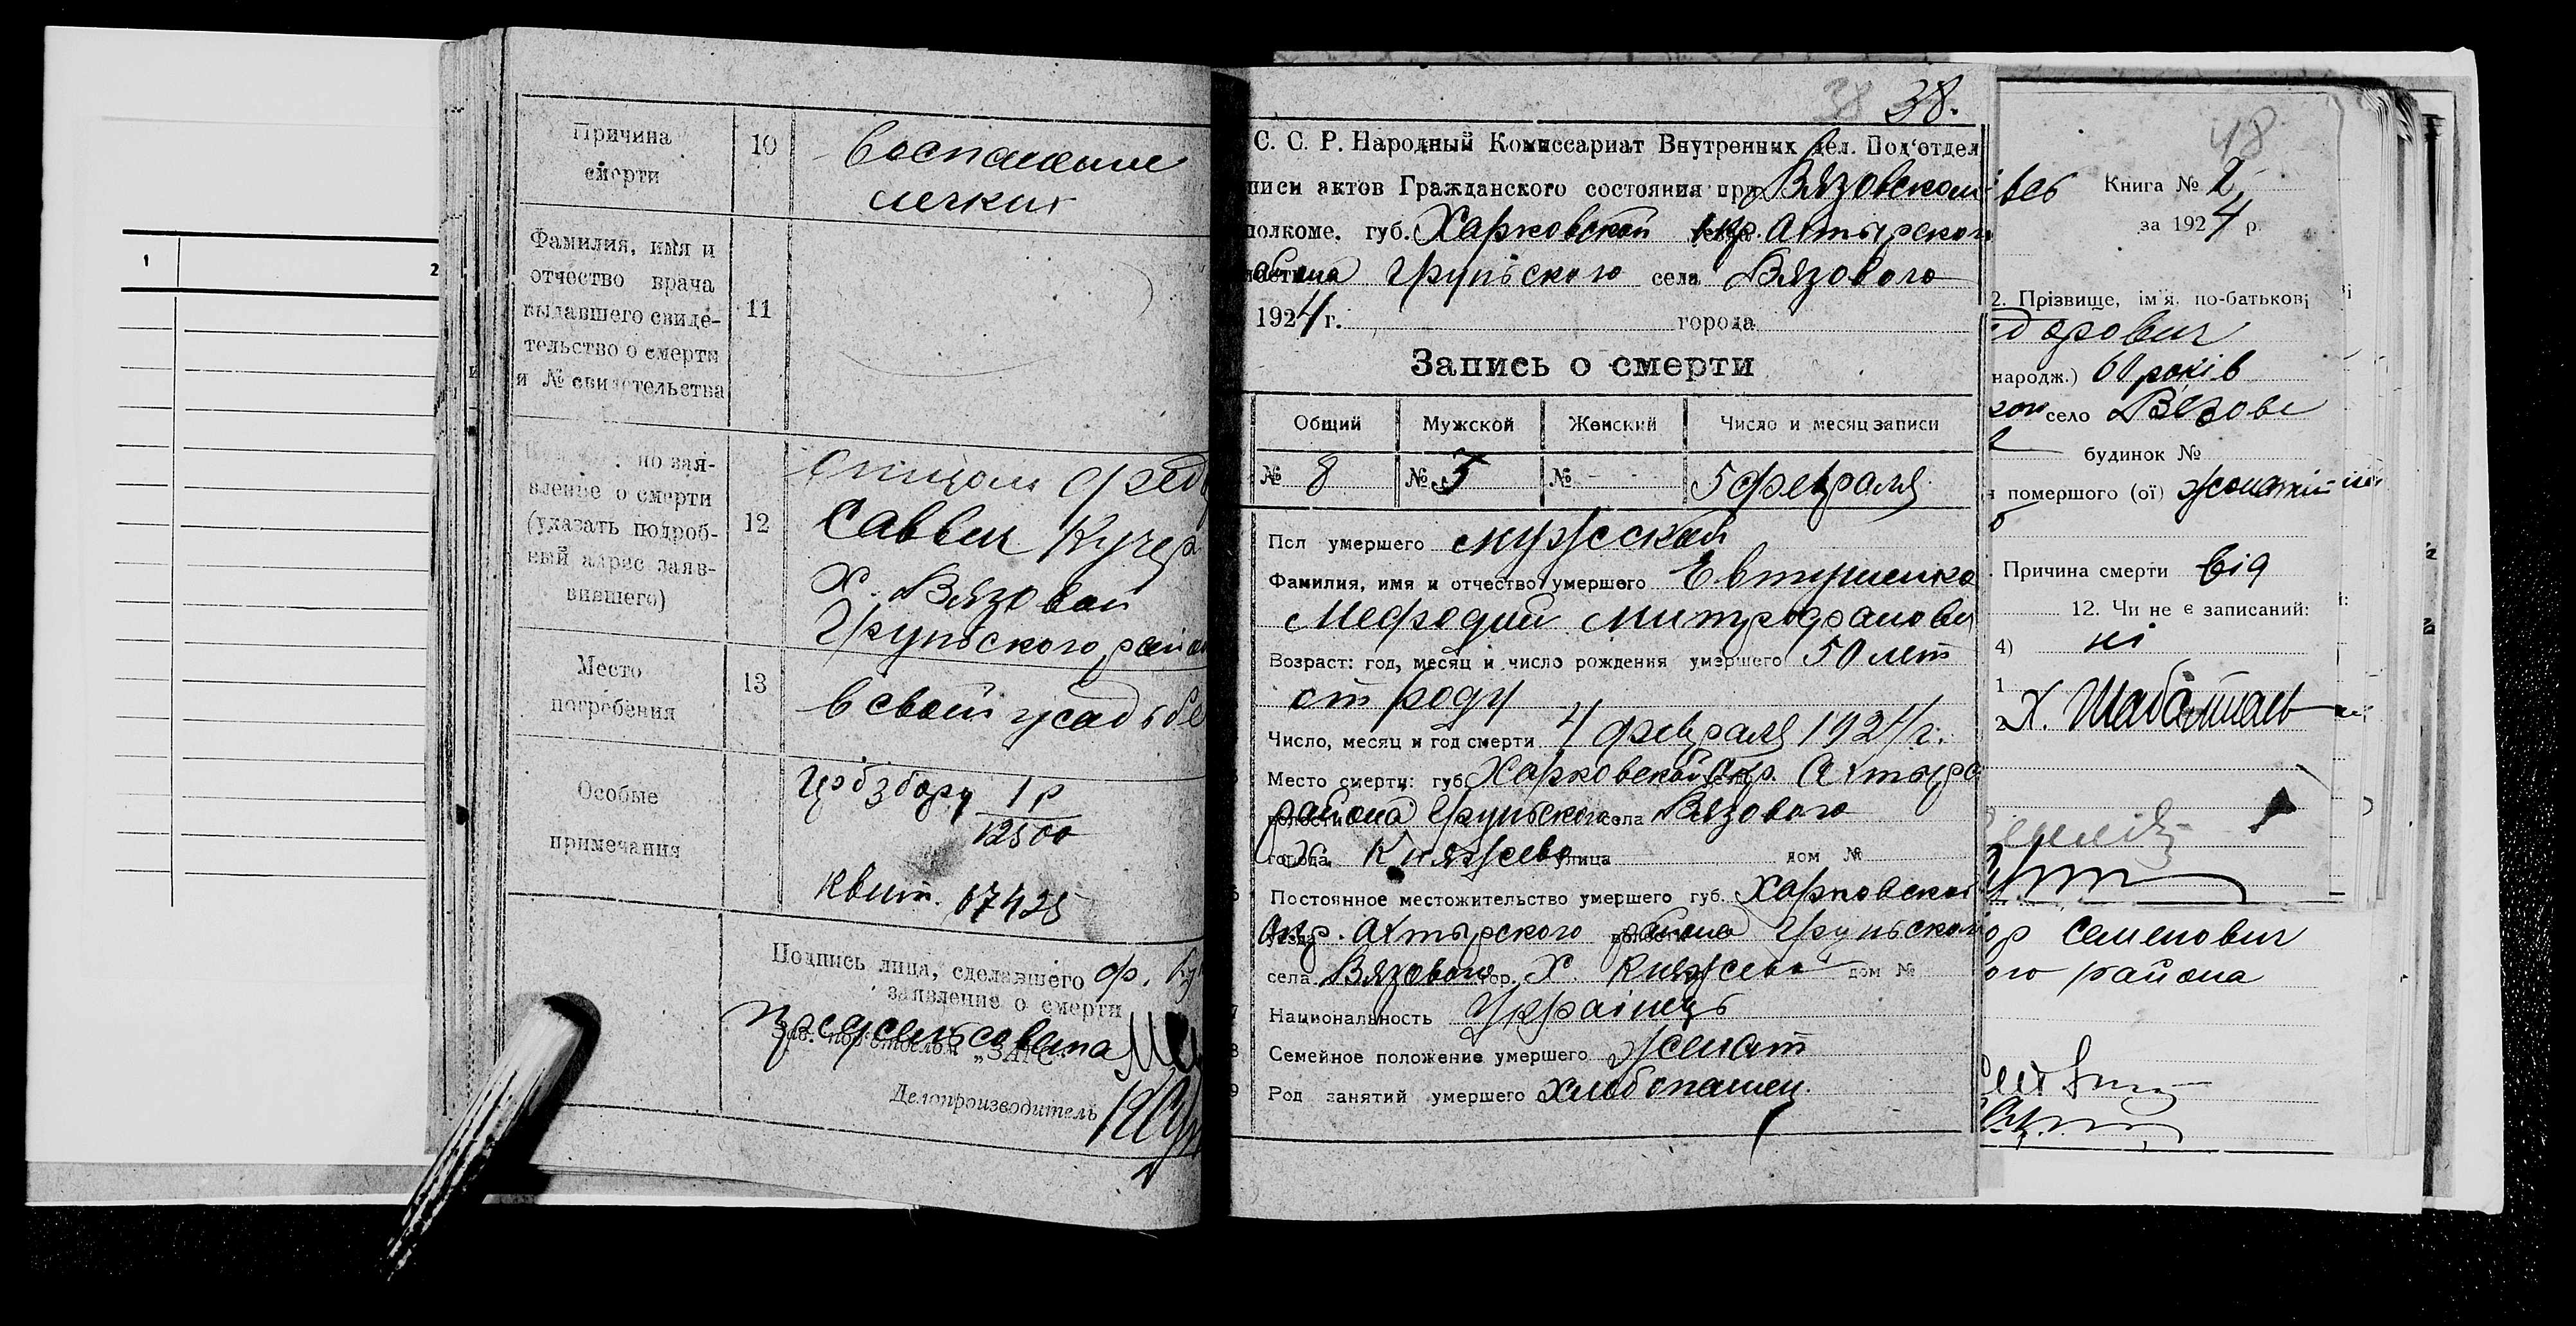 1
2
и
Причина
смерти
10
Воспаление
легких
Фамилия, имя и
отчество врача
выдавшего свиде-
тельство о смерти
и № свидетельства
11
по зая-
вление о смерти
(указать подроб-
ный адрес заяв-
вившего)
12
Саввич Кучер
Х. Вязовой
Груньского район
Место
погребения
13
в своей усадьбе
Особые
примечания
1 р
12500
Квит. 07425
Подпись лица, сделавшего
заявление о смерти
ф. Ку
Предсельсовета
Зав. под'отделом „ЗАГС“
Делопроизводитель
38 38.
С. С. Р. Народный Комиссариат Внутренних дел. Под'отдел
писи актов Гражданского состояния при Вязовском
полкоме. губ. Харковской окр. Ахтырской
района Груньского села Вязового
1924 г. города
Запись о смерти
Общий Мужской Женский Число и месяц записи
№ 8 № 5 № - 5 февраля
Пол умершего мужской
Фамилия, имя и отчество умершего Евтушенко
Мефодий Митрофанови
Возраст: год, месяц и число рождения умершего 50 лет
от роду
Число, месяц и год смерти 4 февраля 1924 г.
Место смерти: губ. Харковской окр. Ахтырс
района Груньского села Вязового
города Х. Княжево улица дом №
Постоянное местожительство умершего губ. Харковской
окр. Ахтырского района Груньской
села Вязового гор. Х. Княжево дом №
Национальность Украінець
Семейное положение умершего женат
Род занятий умершего хлебопашец
48
Книга № 2
за 1924 р.
2. Прізвище, ім'я, по-батькові
дорович
народж.) 60 років
село Вязове
будинок №
помершого (ої)
Причина смерти від
12. Чи не є записаний:
4) ні
1
2 Х.
Семенович
ого района